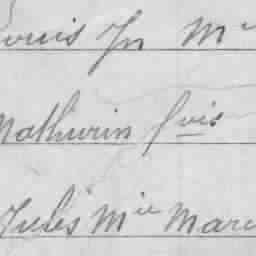 Louis Jn Mie
Mathurin fois
Jules Mie Marc